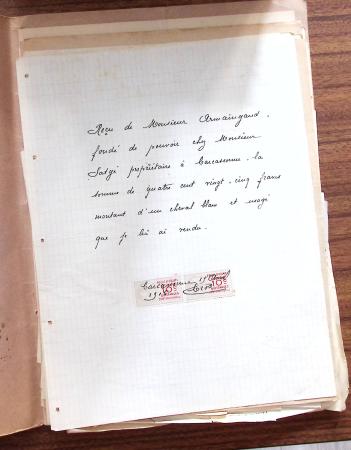 Reçu de Monsieur Armaingaud.
fondé de pouvoir chez Monsieur
Satgé propriétaire à Carcassonne. la
somme de quatre cent vingt. cinq francs
montant d'un cheval blanc et usagé
que je lui ai vendu.
Carcassonne
10 10